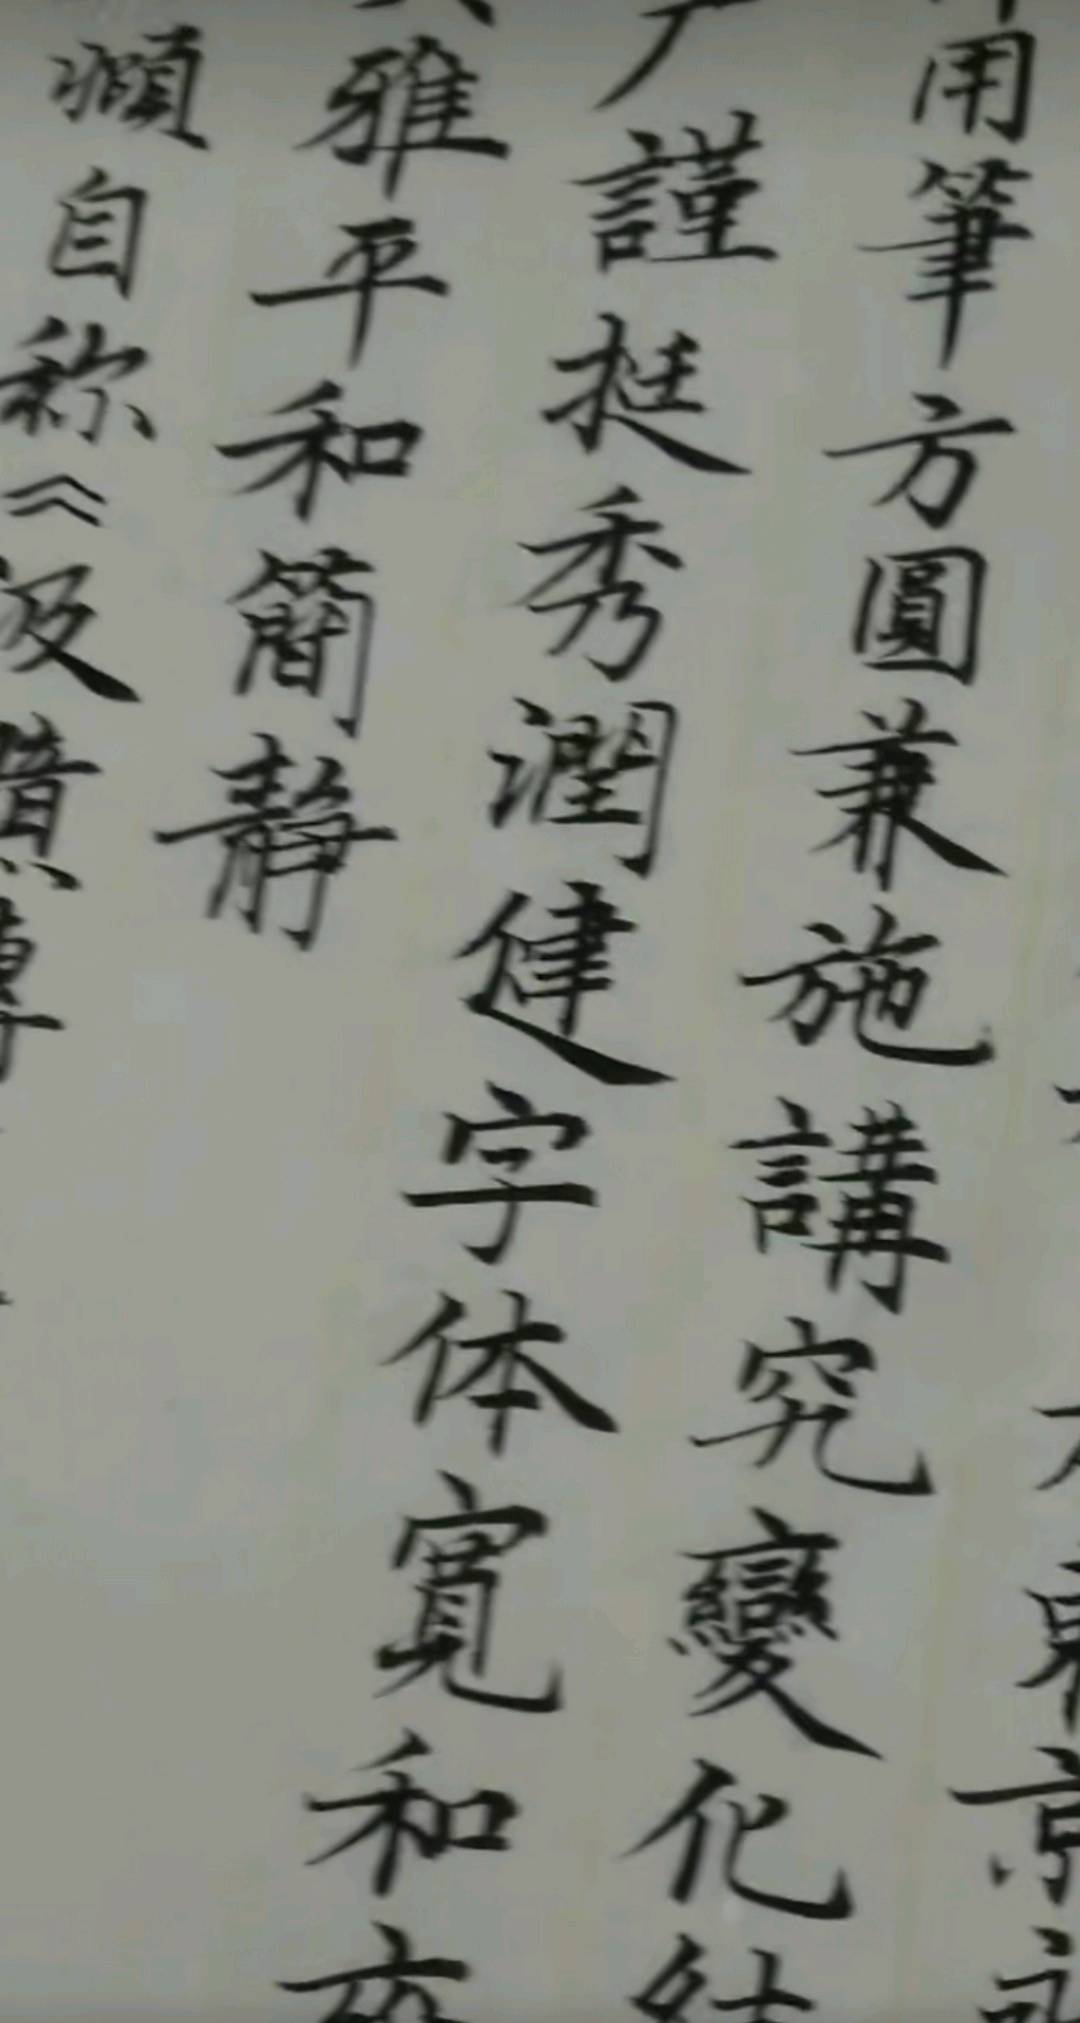 東京
用筆方圓兼施講究變化結
謹挺秀潤健字体寬和
雅平和簡靜
自称《汲